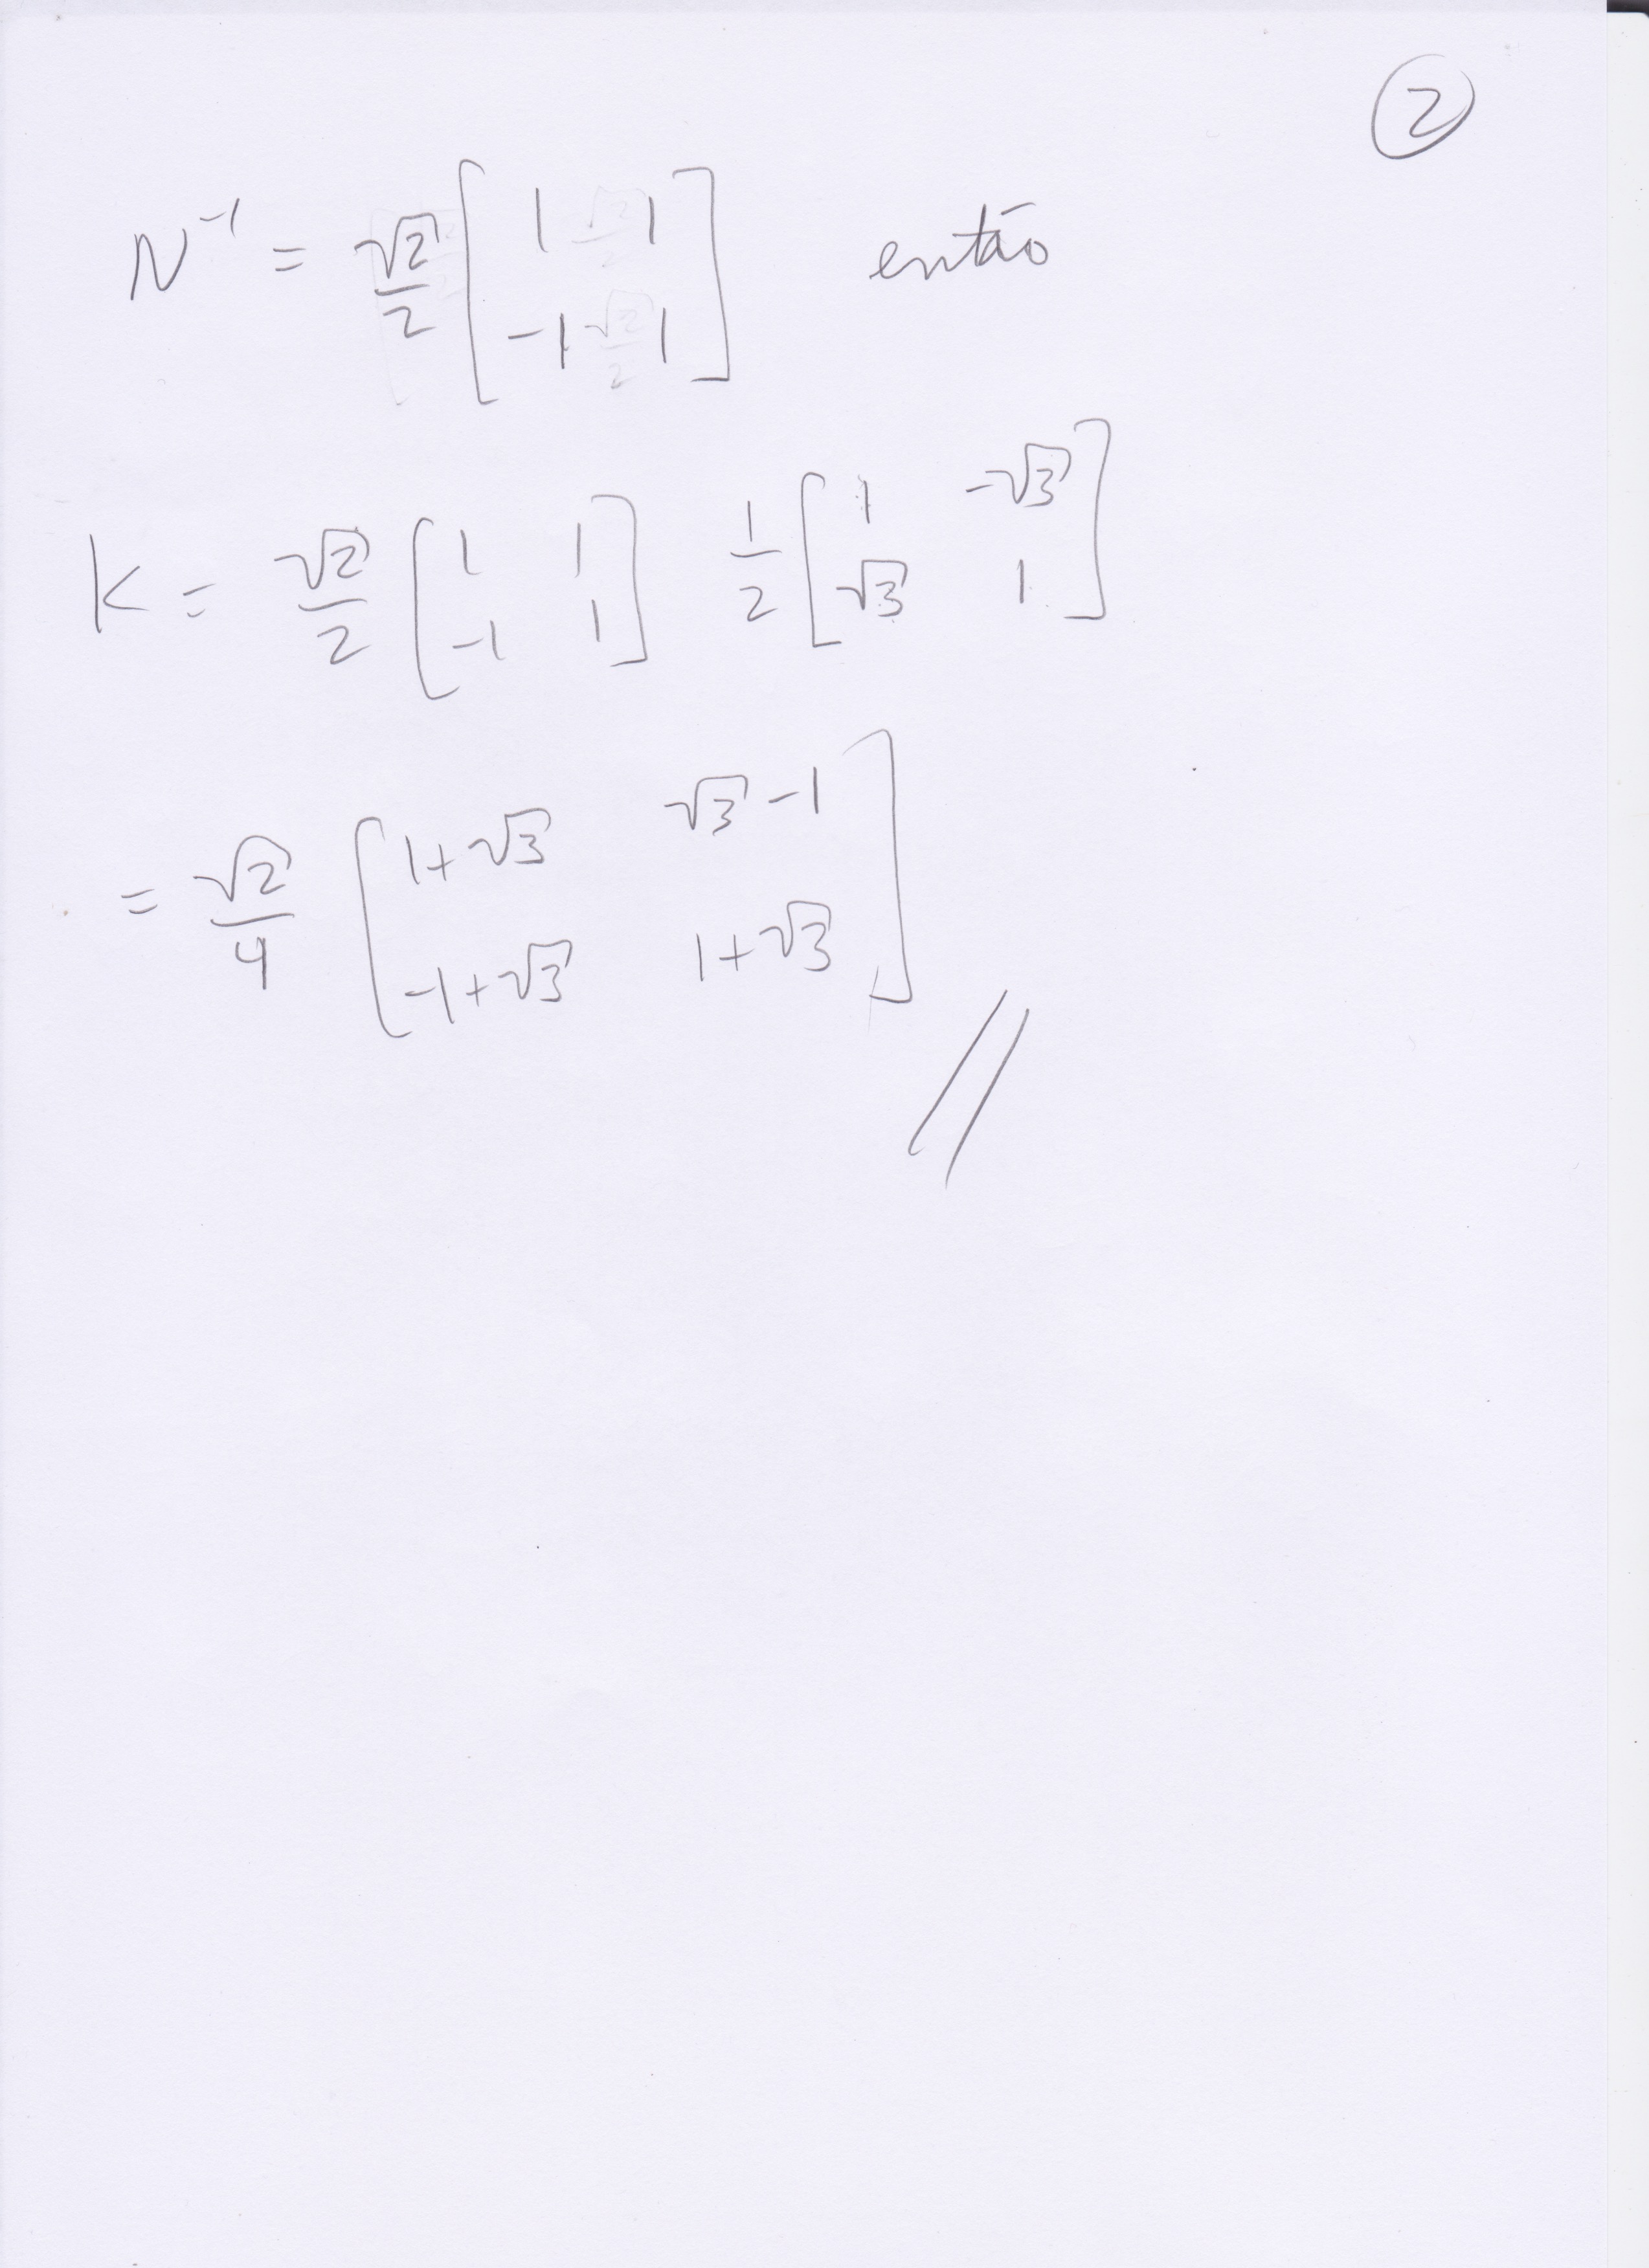 ②
N⁻¹ = √2/2 [ 1 1 ; -1 1 ] então
K = √2/2 [ 1 1 ; -1 1 ] 1/2 [ 1 -√3 ; √3 1 ]
= √2/4 [ 1+√3 √3-1 ; -1+√3 1+√3 ] //